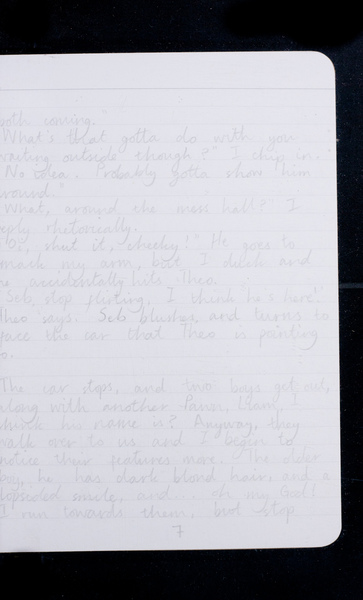 both coming."
"What's that gotta do with you
waiting outside though?" I chip in.
"No idea. Probably gotta show him
around."
"What, around the mess hall?" I
reply rhetorically.
shut it, cheeky!" He goes to
smack my arm, but I duck and
he accidentally hits Theo.
"Seb, stop flirting, I think he's here!"
Theo says. Seb blushes, and turns to
face the car that Theo is pointing
to.
The car stops, and two boys get out,
along with another Liam, I
think his name is? Anyway, they
walk over to us and I begin to
notice their features more. The older
boy, he has dark blond hair, and a
lopsided smile, and... oh my God!
I run towards them, but stop
7